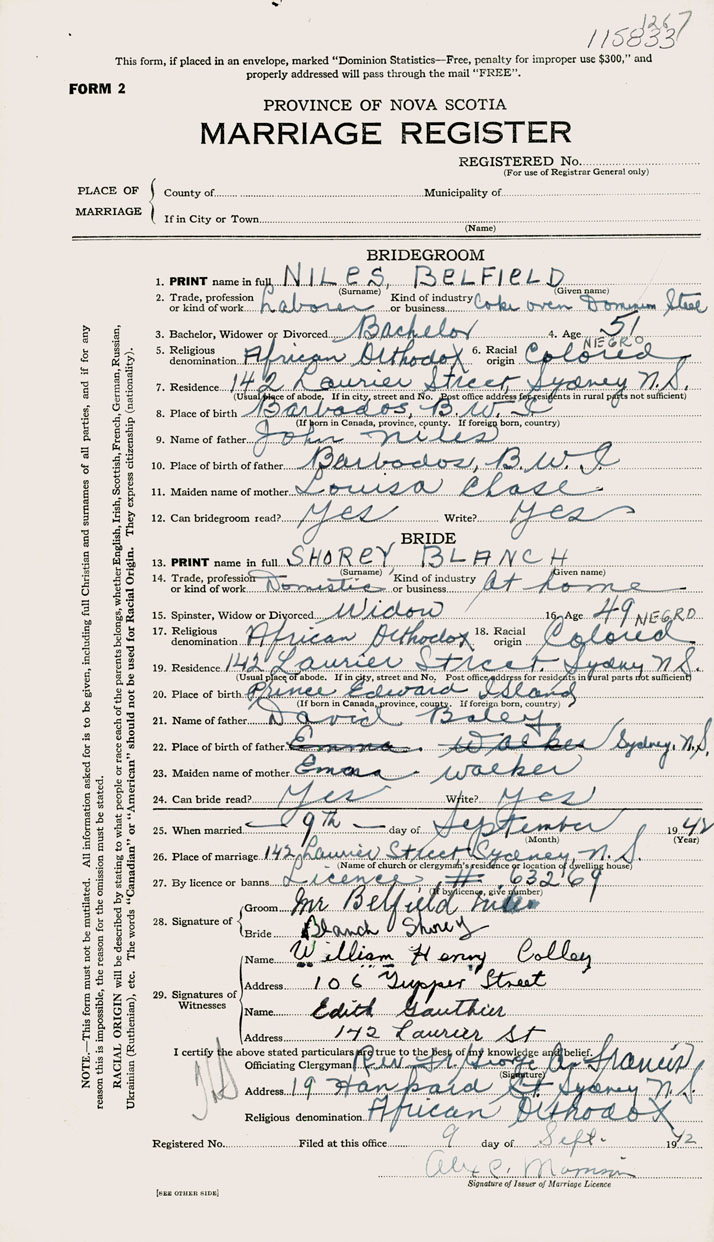 1267
115833
This form, if placed in an envelope, marked “Dominion Statistics—Free, penalty for improper use $300,” and
properly addressed will pass through the mail “FREE”.
FORM 2
PROVINCE OF NOVA SCOTIA
MARRIAGE REGISTER
REGISTERED No.
(For use of Registrar General only)
PLACE OF MARRIAGE
County of Municipality of
If in City or Town
(Name)
BRIDEGROOM
1. PRINT name in full NILES, BELFIELD
(Surname) (Given name)
2. Trade, profession or kind of work Laborer Kind of industry or business Coke oven Dominion Steel
3. Bachelor, Widower or Divorced Bachelor 4. Age 51
NEGRO
5. Religious denomination African Orthodox 6. Racial origin Colored
7. Residence 142 Laurier Street Sydney N.S.
(Usual place of abode. If in city, street and No. Post office address for residents in rural parts not sufficient)
8. Place of birth Barbados, B.W.I
(If born in Canada, province, county. If foreign born, country)
9. Name of father John Niles
10. Place of birth of father Barbados, B.W.I
11. Maiden name of mother Louisa Chase
12. Can bridegroom read? Yes Write? Yes
BRIDE
13. PRINT name in full SHOREY BLANCH
(Surname) (Given name)
14. Trade, profession or kind of work Domestic Kind of industry or business At home
15. Spinster, Widow or Divorced Widow 16. Age 49 NEGRO
17. Religious denomination African Orthodox 18. Racial origin Colored
19. Residence 142 Laurier Street Sydney N.S.
(Usual place of abode. If in city, street and No. Post office address for residents in rural parts not sufficient)
20. Place of birth Prince Edward Island
(If born in Canada, province, county. If foreign born, country)
21. Name of father David Baley
22. Place of birth of father Emma Walker Sydney, N.S.
23. Maiden name of mother Emma Walker
24. Can bride read? Yes Write? Yes
25. When married 9th day of September 1942
(Month) (Year)
26. Place of marriage 142 Laurier Street, Sydney, N.S.
(Name of church or clergyman's residence or location of dwelling house)
27. By licence or banns Licence # 63269
(If by licence, give number)
28. Signature of
Groom Mr Belfield Niles
Bride Blanch Shorey
29. Signatures of Witnesses
Name William Henry Colley
Address 106 Tupper Street
Name Edith Gauthier
Address 142 Laurier St
I certify the above stated particulars are true to the best of my knowledge and belief.
Officiating Clergyman Rev George A. Francis
(Signature)
Address 19 Hanpard St Sydney N.S.
Religious denomination African Orthodox
Registered No. Filed at this office 9 day of Sept. 1942
Signature of Issuer of Marriage Licence
[SEE OTHER SIDE]
NOTE.—This form must not be mutilated. All information asked for is to be given, including full Christian and surnames of all parties, and if for any
reason this is impossible, the reason for the omission must be stated.
RACIAL ORIGIN will be described by stating to what people or race each of the parents belongs, whether English, Irish, Scottish, French, German, Russian,
Ukrainian (Ruthenian), etc. The words “Canadian” or “American” should not be used for Racial Origin. They express citizenship (nationality).